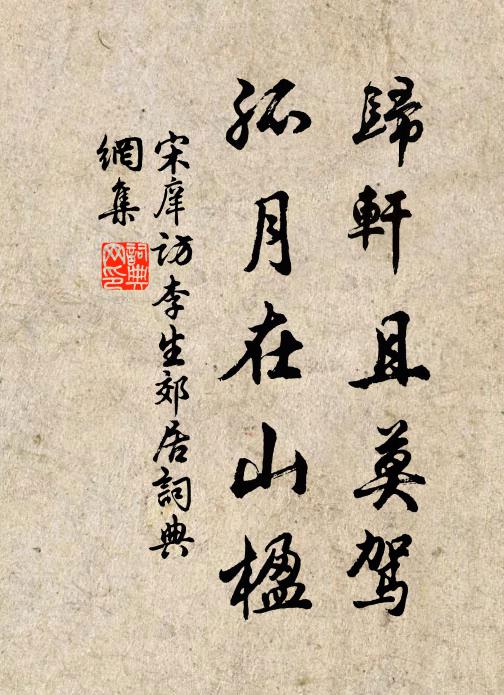 歸軒且莫駕
孤月在山楹
宋庠訪李生郊居詞典
網集
詞典
网印